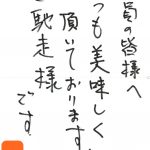 員の皆様へ
つも美味しく
頂いております
馳走様
です。